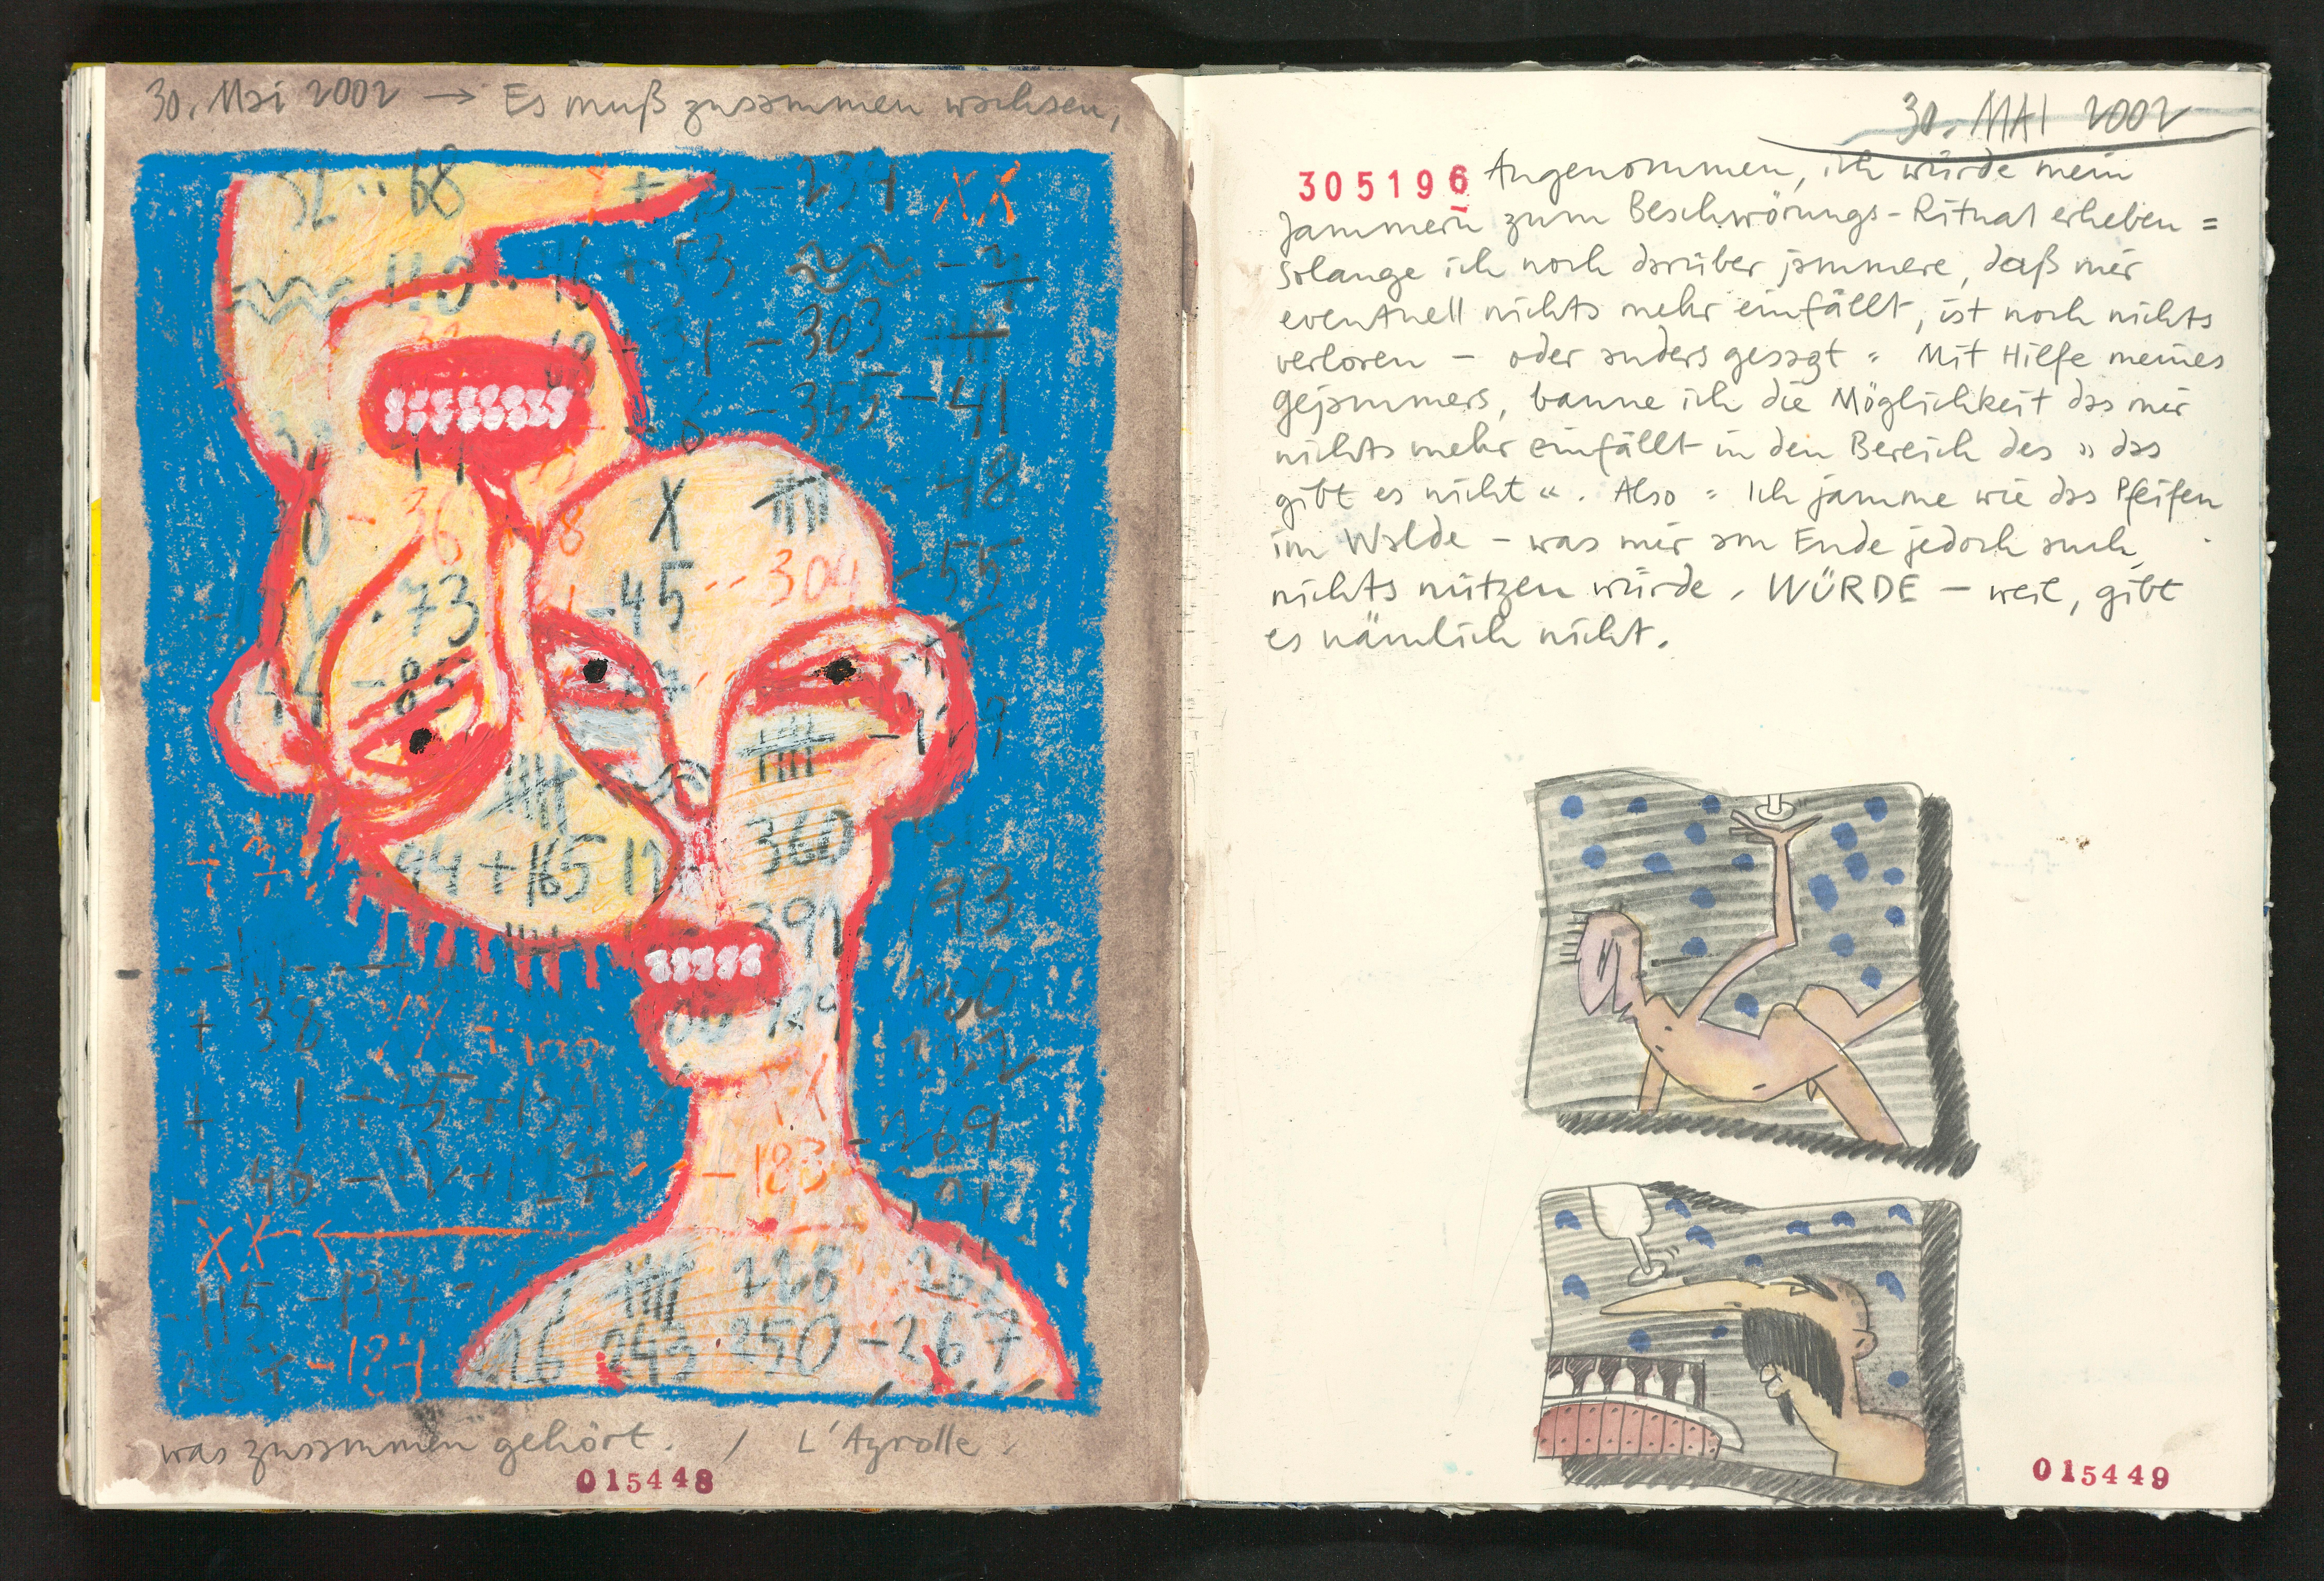 30. Mai 2002 → Es muß zusammen wachsen,
52 68 -234 XX
110 76 +53
31 -303
6 -355 -41
-48
X
-45 304 -55
-36
73
-85
360
94 + 165
391 193
38
+ 1 +25 +134
46 +127 -183 -269
XX ←
-115 -137 228
-184 216 243 250 -267
was zusammen gehört. / L'Ayrolle.
015448
30. MAI 2002
305196 Angenommen, ich würde mein
Jammern zum Beschwörungs-Ritual erheben =
solange ich noch darüber jammere, daß mir
eventuell nichts mehr einfällt, ist noch nichts
verloren – oder anders gesagt = Mit Hilfe meines
Gejammers, banne ich die Möglichkeit das mir
nichts mehr einfällt in den Bereich des » das
gibt es nicht «. Also = Ich jamme wie das Pfeifen
im Walde – was mir am Ende jedoch auch
nichts nützen würde. WÜRDE – weil, gibt
es nämlich nicht.
015449